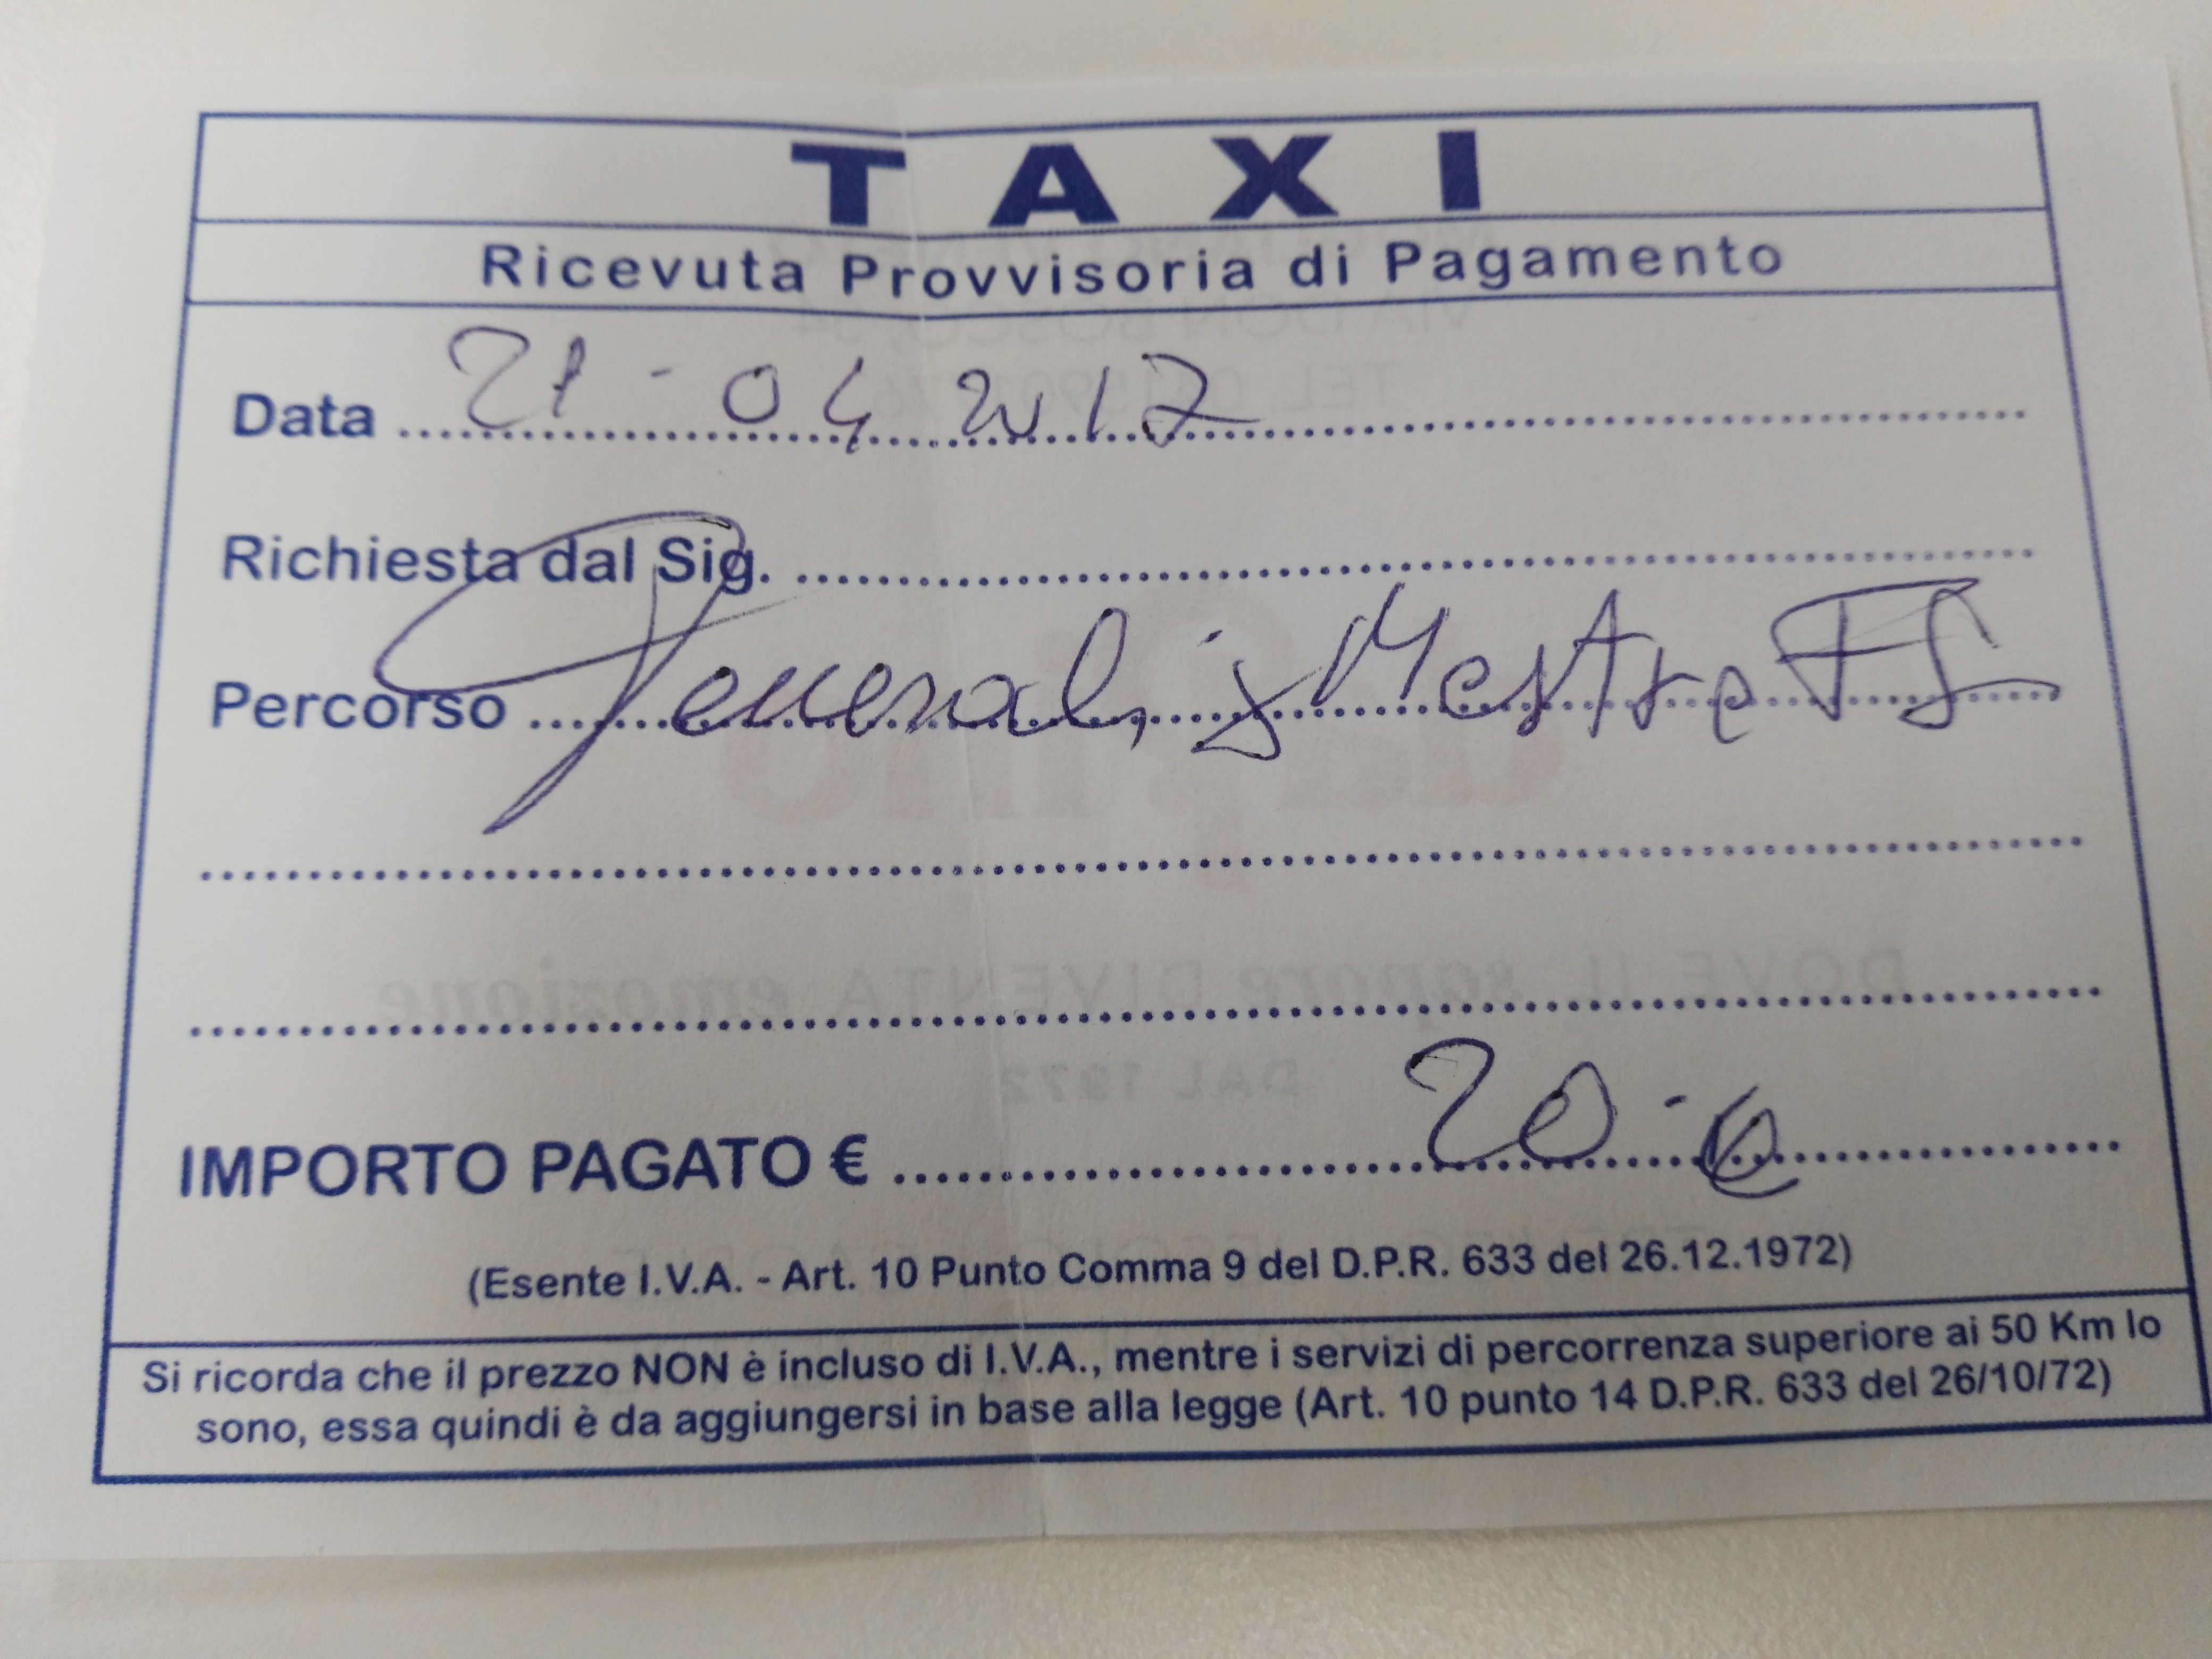 TAXI
Ricevuta Provvisoria di Pagamento
Data 21-04 2017
Richiesta dal Sig.
Percorso Generali x Mestre FS
IMPORTO PAGATO € 20-€
(Esente I.V.A. - Art. 10 Punto Comma 9 del D.P.R. 633 del 26.12.1972)
Si ricorda che il prezzo NON è incluso di I.V.A., mentre i servizi di percorrenza superiore ai 50 Km lo
sono, essa quindi è da aggiungersi in base alla legge (Art. 10 punto 14 D.P.R. 633 del 26/10/72)
DOVE IL sapore DIVENTA emozione
DAL 1972